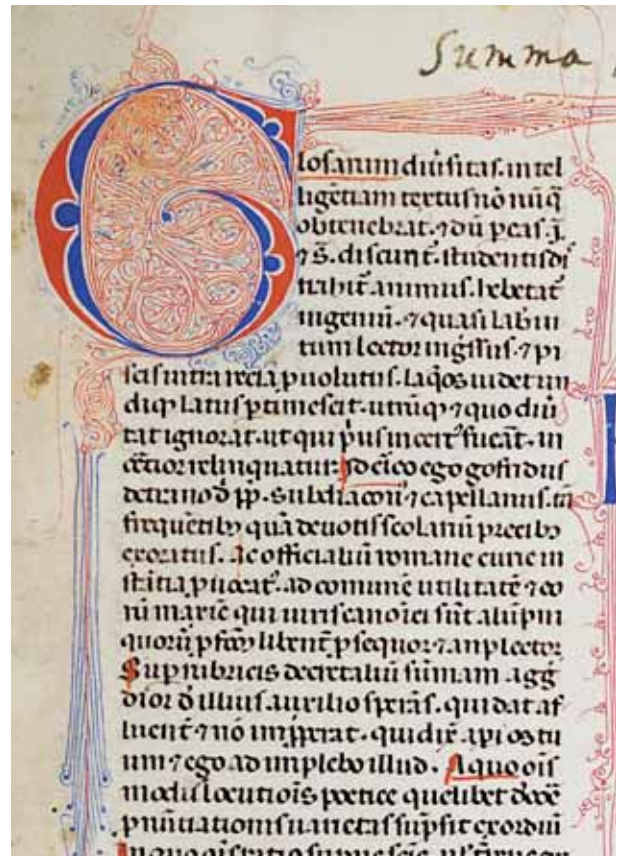 Summa
Glosarum diu͛sitas. intel
ligētiam textus nō nūq̄
obtenebrat. ⁊ dū p eas. ī
⁊ s̄. discurit᷑. studentis di
trahit᷑ animus. hebetat᷑
ingeniū. ⁊ quasi labiri
tum lector ing̃ssus. ⁊ pi
scis intra recia p̱uolutus. laq̄os uidet un
diq; latus p̱timescit. utrūq; ⁊ quo diū
tat ignorat. ut qui p̓us incert᷒ fuc̄at. in
cētior relinquatur: Idcīco ego gofridus
detrano d̄ pp̄. subdiacon᷒ ⁊ capellanus. tā
freq̄uētib; quā deuotis scolariū precib;
exoratus. Ac officialiū romane curie in
ad comunē utilitatē ⁊ eo
rū maxīe qui iuris canoīci sūt alūpni
quorū pfcō libent᷑ p̱sequor ⁊ anplector
Sup rubricis decretaliū sūmam agg̃
dior d̄ illius auxilio sperās. qui dat af
fluent᷑ ⁊ nō imp̱perat. qui dix̄. ap̱i os tu
um ⁊ ego adimplebo illud. A quo oīs
modis locutiōis poetice quelibet docē
p̱nūtiationis uarietas sūpsit exordiū